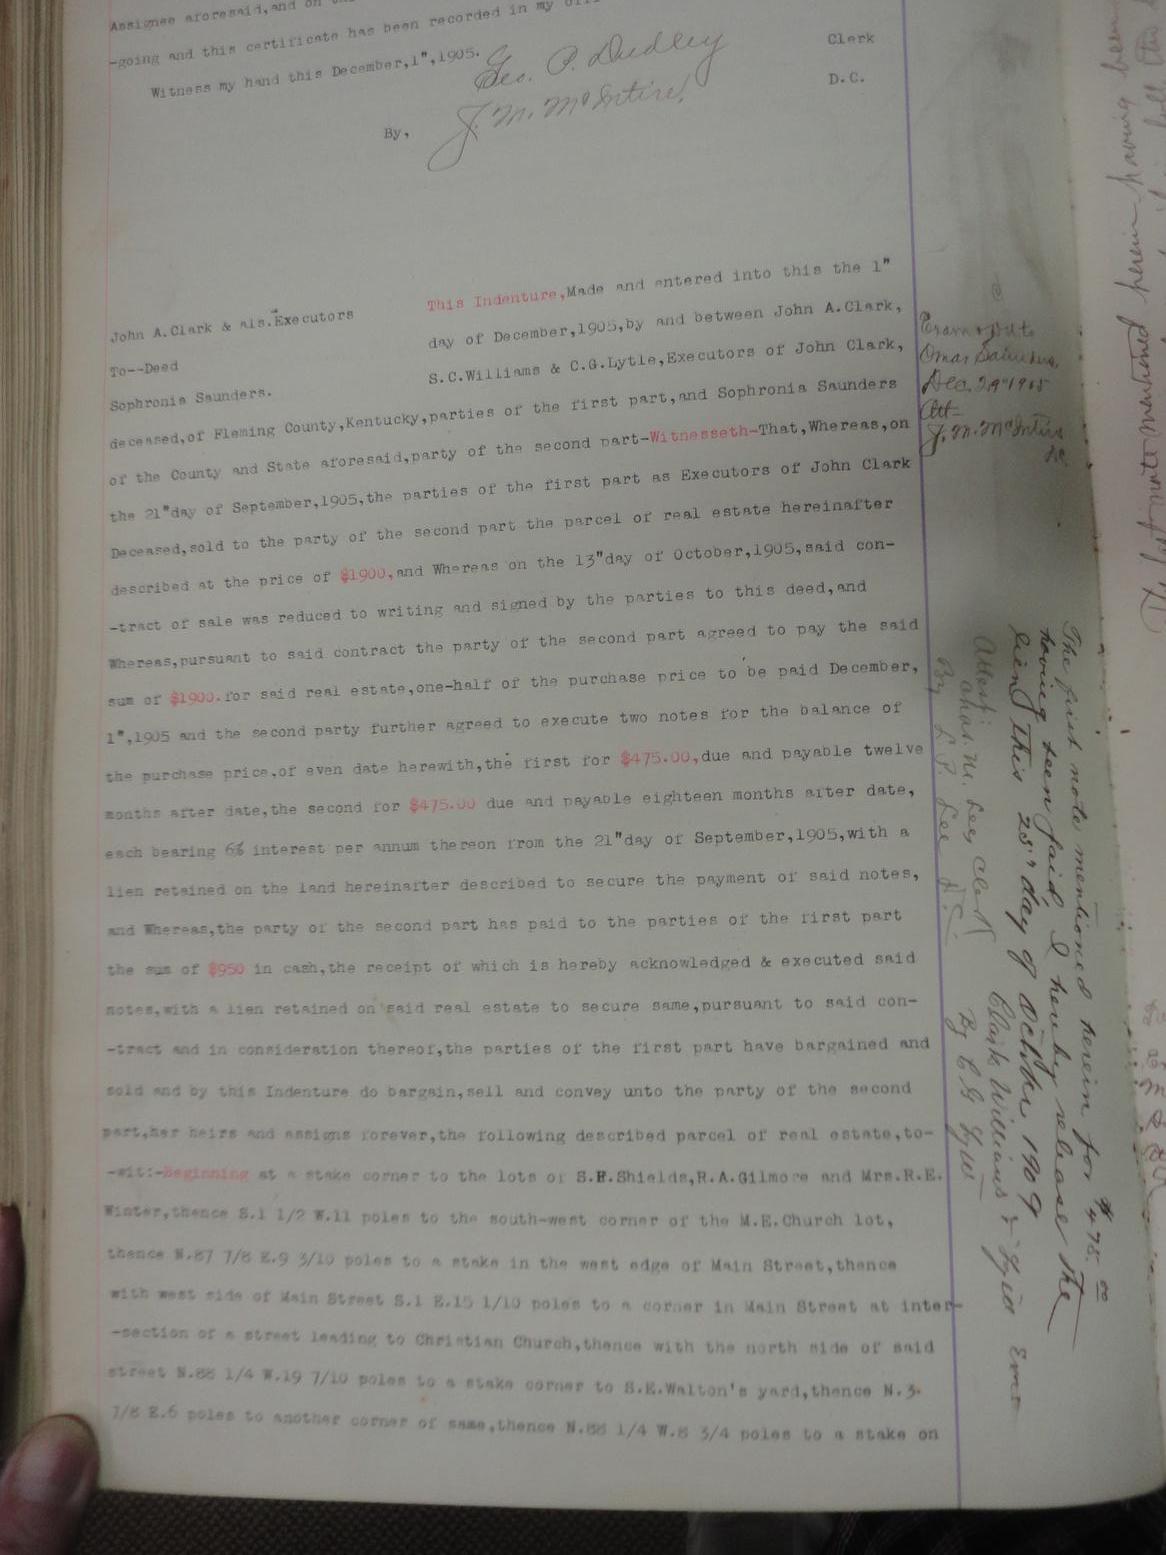 Assignee aforesaid,and on
-going and this certificate has been recorded in my
Witness my hand this December,1",1905.
Geo. P. Dudley Clerk
By, J. M. McIntire, D.C.
John A.Clark & als.Executors
To--Deed
Sophronia Saunders.
This Indenture,Made and entered into this the 1"
day of December,1905,by and between John A.Clark,
S.C.Williams & C.G.Lytle,Executors of John Clark,
deceased,of Fleming County,Kentucky,parties of the first part,and Sophronia Saunders
of the County and State aforesaid,party of the second part-Witnesseth-That,Whereas,on
the 21"day of September,1905,the parties of the first part as Executors of John Clark
Deceased,sold to the party of the second part the parcel of real estate hereinafter
described at the price of $1900,and Whereas on the 13"day of October,1905,said con-
-tract of sale was reduced to writing and signed by the parties to this deed,and
Whereas,pursuant to said contract the party of the second part agreed to pay the said
sum of $1900.for said real estate,one-half of the purchase price to be paid December,
1",1905 and the second party further agreed to execute two notes for the balance of
the purchase price,of even date herewith,the first for $475.00,due and payable twelve
months after date,the second for $475.00 due and payable eighteen months after date,
each bearing 6% interest per annum thereon from the 21"day of September,1905,with a
lien retained on the land hereinafter described to secure the payment of said notes,
and Whereas,the party of the second part has paid to the parties of the first part
the sum of $950 in cash,the receipt of which is hereby acknowledged & executed said
notes,with a lien retained on said real estate to secure same,pursuant to said con-
-tract and in consideration thereof,the parties of the first part have bargained and
sold and by this Indenture do bargain,sell and convey unto the party of the second
part,her heirs and assigns forever,the following described parcel of real estate,to-
-wit:-Beginning at a stake corner to the lots of S.H.Shields,R.A.Gilmore and Mrs.R.E.
Winter,thence S.1 1/2 W.11 poles to the south-west corner of the M.E.Church lot,
thence N.87 7/8 E.9 3/10 poles to a stake in the west edge of Main Street,thence
with west side of Main Street S.1 E.15 1/10 poles to a corner in Main Street at inter-
-section of a street leading to Christian Church,thence with the north side of said
street N.88 1/4 W.19 7/10 poles to a stake corner to S.E.Walton's yard,thence N.3-
7/8 E.6 poles to another corner of same,thence N.88 1/4 W.8 3/4 poles to a stake on
Exam & Del to
Omar Saunders,
Dec. 29" 1905
Att-
J. M. McIntire
DC
The first note mentioned herein for $475.00
having been paid, I hereby release the
lien this 25" day of October 1909
Clark Williams & Exrs
By C G
Attest:
Chas. N. Lee, Clerk
By L. P. Lee D.C.
The first note mentioned herein having been